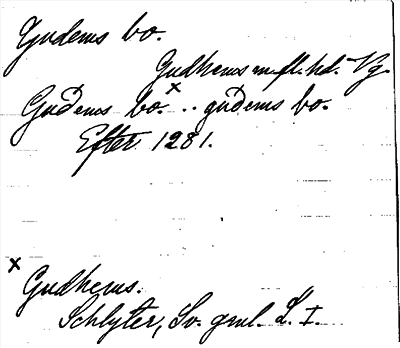 Gudems bo.
Gudhems m. fl. hd. Vg.
Guðems bo.× .. guðems bo.
Efter 1281.
× Gudhems.
Schlyter, Sv. gml. L. I.